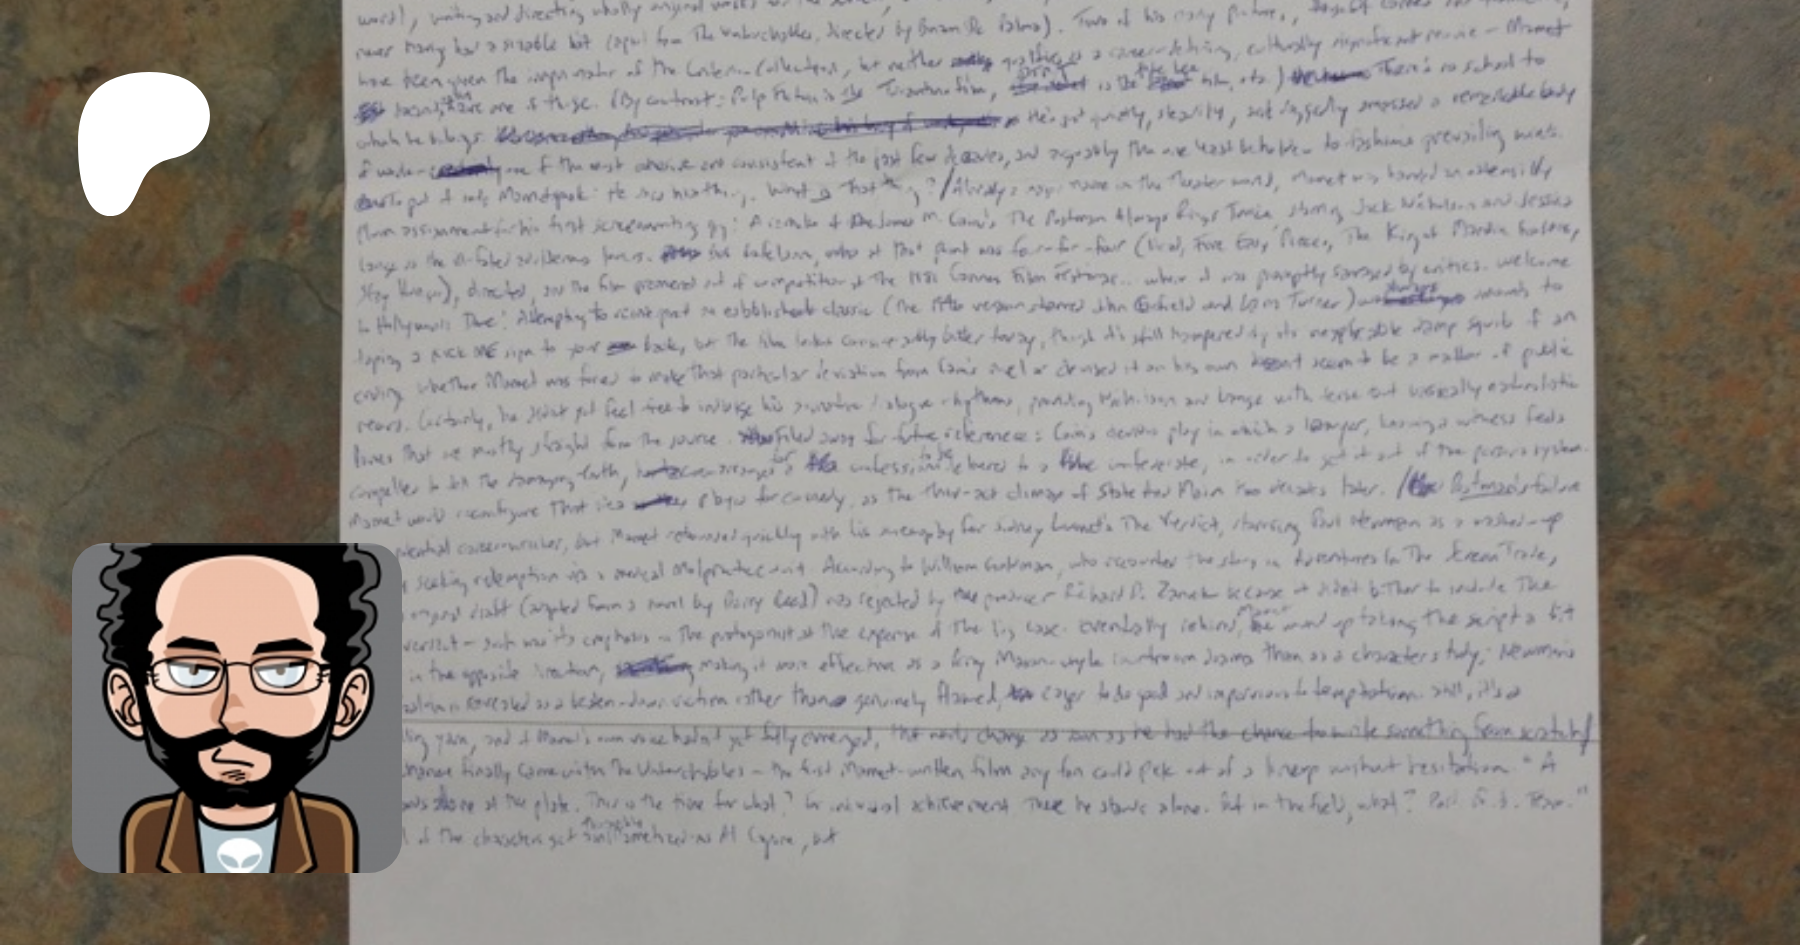 word), writing and directing wholly original works for the
never many had a sizable hit (apart from The Untouchables, directed by Brian De Palma). Two of his many pictures,
have been given the imprimatur of the Criterion Collection, but neither qualifies as a career-defining, culturally significant movie — Mamet
one of those. (By contrast: Pulp Fiction is the Tarantino film, is the film, etc.) There's no school to
which he belongs. He's just quietly, steadily, and doggedly amassed a remarkable body
of work— one of the most cohesive and consistent of the past few decades, and arguably the one least beholden to fashion's prevailing winds.
To put it into Mametspeak: He has his thing. What is that thing? / Already a major name in the theater world, Mamet was handed an ostensibly
plum assignment for his first screenwriting gig: A remake of James M. Cain's The Postman Always Rings Twice, starring Jack Nicholson and Jessica
Lange as the ill-fated adulterous lovers. Bob Rafelson, who at that point was four-for-four (Head, Five Easy Pieces, The King of Marvin Gardens,
Stay Hungry), directed, and the film premiered out of competition at the 1981 Cannes Film Festival... where it was promptly savaged by critics. Welcome
to Hollywood, Dave! Attempting to reinterpret an established classic (the 1946 version starred John Garfield and Lana Turner) always amounts to
taping a KICK ME sign to your back, but the film looks considerably better today, though it's still hampered by its inexplicable damp squib of an
ending. Whether Mamet was forced to make that particular deviation from Cain's novel or devised it on his own doesn't seem to be a matter of public
record. Certainly, he didn't yet feel free to indulge his signature dialogue rhythms, providing Nicholson and Lange with terse but basically naturalistic
lines that are mostly straight from the source. Filed away for future reference: Cain's devious ploy in which a lawyer, knowing a witness feels
compelled to tell the damaging truth, arranges for a confession to be delivered to a fake confederate, in order to get it out of the person's system.
Mamet would reconfigure that idea played for comedy, as the third-act climax of State And Main two decades later. / Postman's failure
potential career-wrecker, but Mamet rebounded quickly with his screenplay for Sidney Lumet's The Verdict, starring Paul Newman as a washed-up
seeking redemption via a medical malpractice suit. According to William Goldman, who recounted the story in Adventures In The Screen Trade,
original draft (adapted from a novel by Barry Reed) was rejected by producer Richard D. Zanuck because it didn't bother to include the
verdict — such was its emphasis on the protagonist at the expense of the big case. Eventually rehired, Mamet wound up taking the script a bit
in the opposite direction, making it more effective as a Perry Mason-style courtroom drama than as a character study; Newman's
is revealed as a beaten-down victim rather than genuinely flawed, eager to do good and impervious to temptation. Still, it's a
yarn, and if Mamet's own voice hadn't yet fully emerged, that would change as soon as he had the chance to write something from scratch /
chance finally came with The Untouchables — the first Mamet-written film any fan could pick out of a lineup without hesitation. "A
stands alone at the plate. This is the time for what? For individual achievement. There he stands alone. But in the field, what? Part of a team."
of the characters get as thoroughly Mametized as Al Capone, but